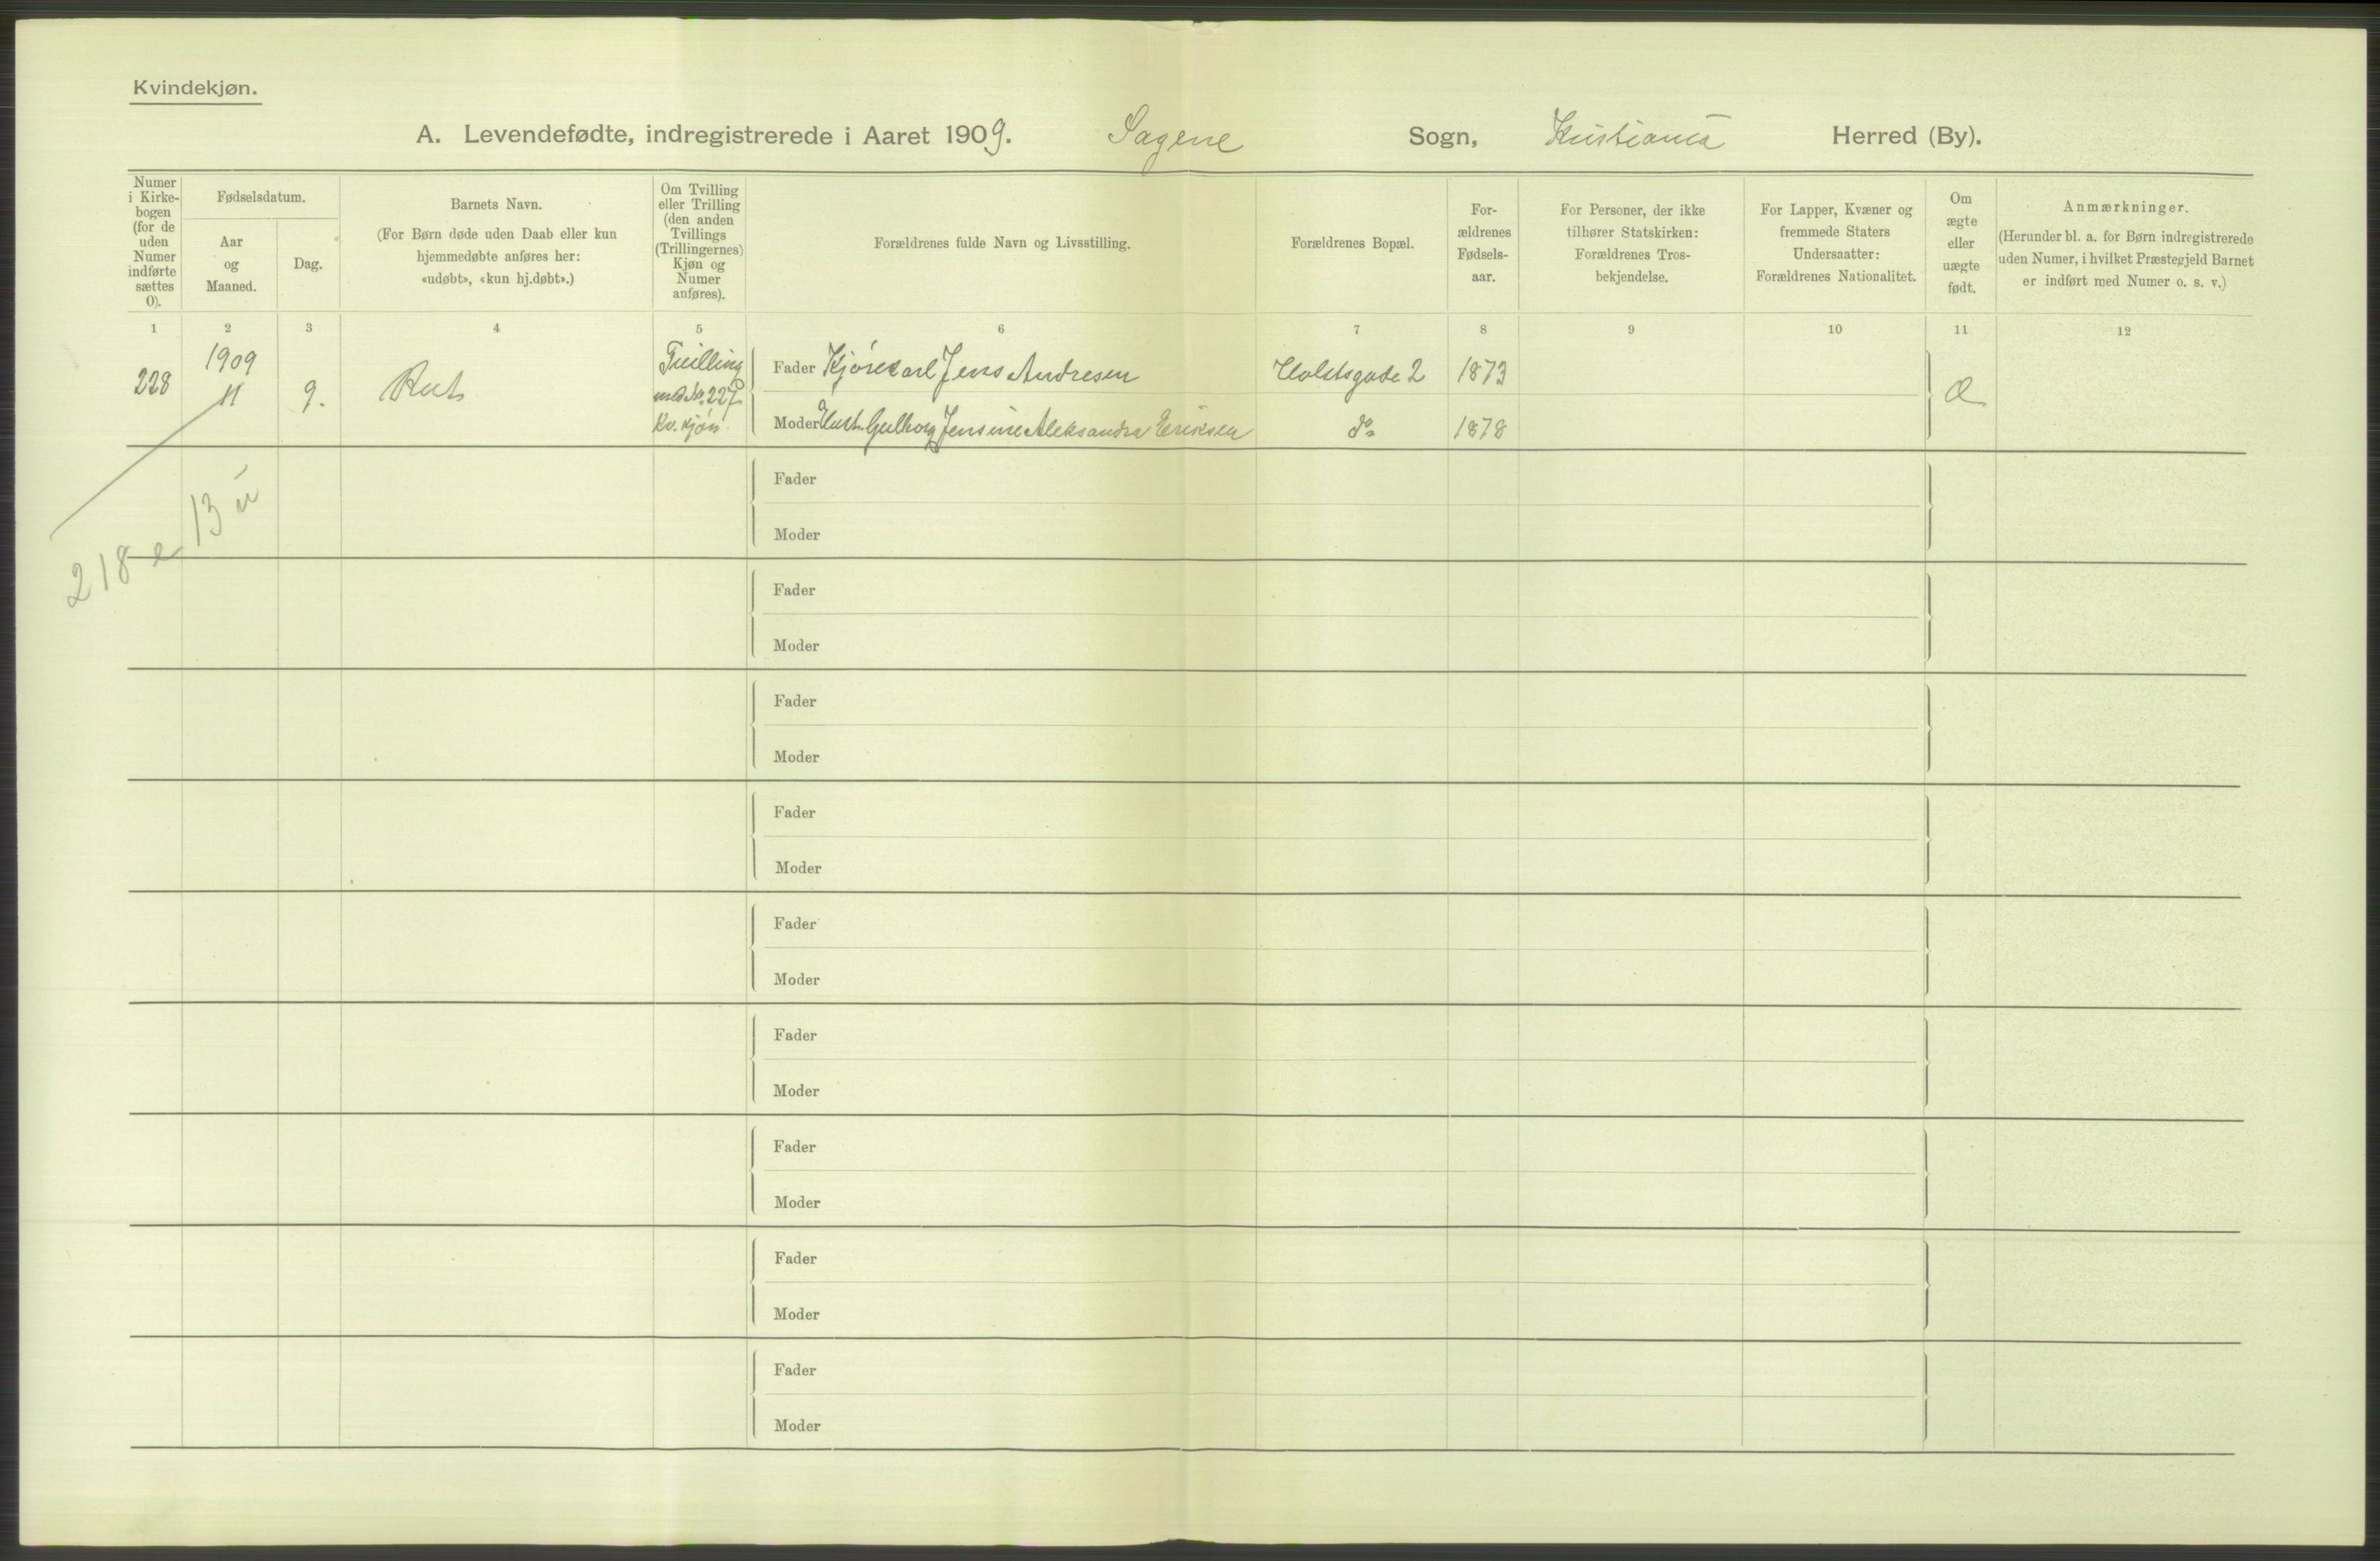 Kvindekjøn.
A. Levendefødte, indregistrerede i Aaret 1909. Sagene Sogn, Kristiania Herred (By).
Numer i Kirke-bogen (for de uden Numer indførte sættes 0).
Fødselsdatum.
Aar og Maaned.
Dag.
Barnets Navn.
(For Børn døde uden Daab eller kun
hjemmedøbte anføres her:
«udøbt», «kun hj.døbt».)
Om Tvilling
eller Trilling
(den anden
Tvillings
(Trillingernes)
Kjøn og
Numer
anføres).
Forældrenes fulde Navn og Livsstilling.
Forældrenes Bopæl.
For-
ældrenes
Fødsels-
aar.
For Personer, der ikke
tilhører Statskirken:
Forældrenes Tros-
bekjendelse.
For Lapper, Kvæner og
fremmede Staters
Undersaatter:
Forældrenes Nationalitet.
Om
ægte
eller
uægte
født.
Anmærkninger.
(Herunder bl. a. for Børn indregistrerede
uden Numer, i hvilket Præstegjeld Barnet
er indført med Numer o. s. v.)
1 2 3 4 5 6 7 8 9 10 11 12
228 1909 11 9. Rut
Tvilling
med No. 227
Kv. kjøn.
Fader Kjørekarl Jens Andresen Holstsgade 2 1873
Moder Hustr. Gulborg Jensine Aleksandra Eriksen do 1878
Æ
218 e 13 u
Fader
Moder
Fader
Moder
Fader
Moder
Fader
Moder
Fader
Moder
Fader
Moder
Fader
Moder
Fader
Moder
Fader
Moder